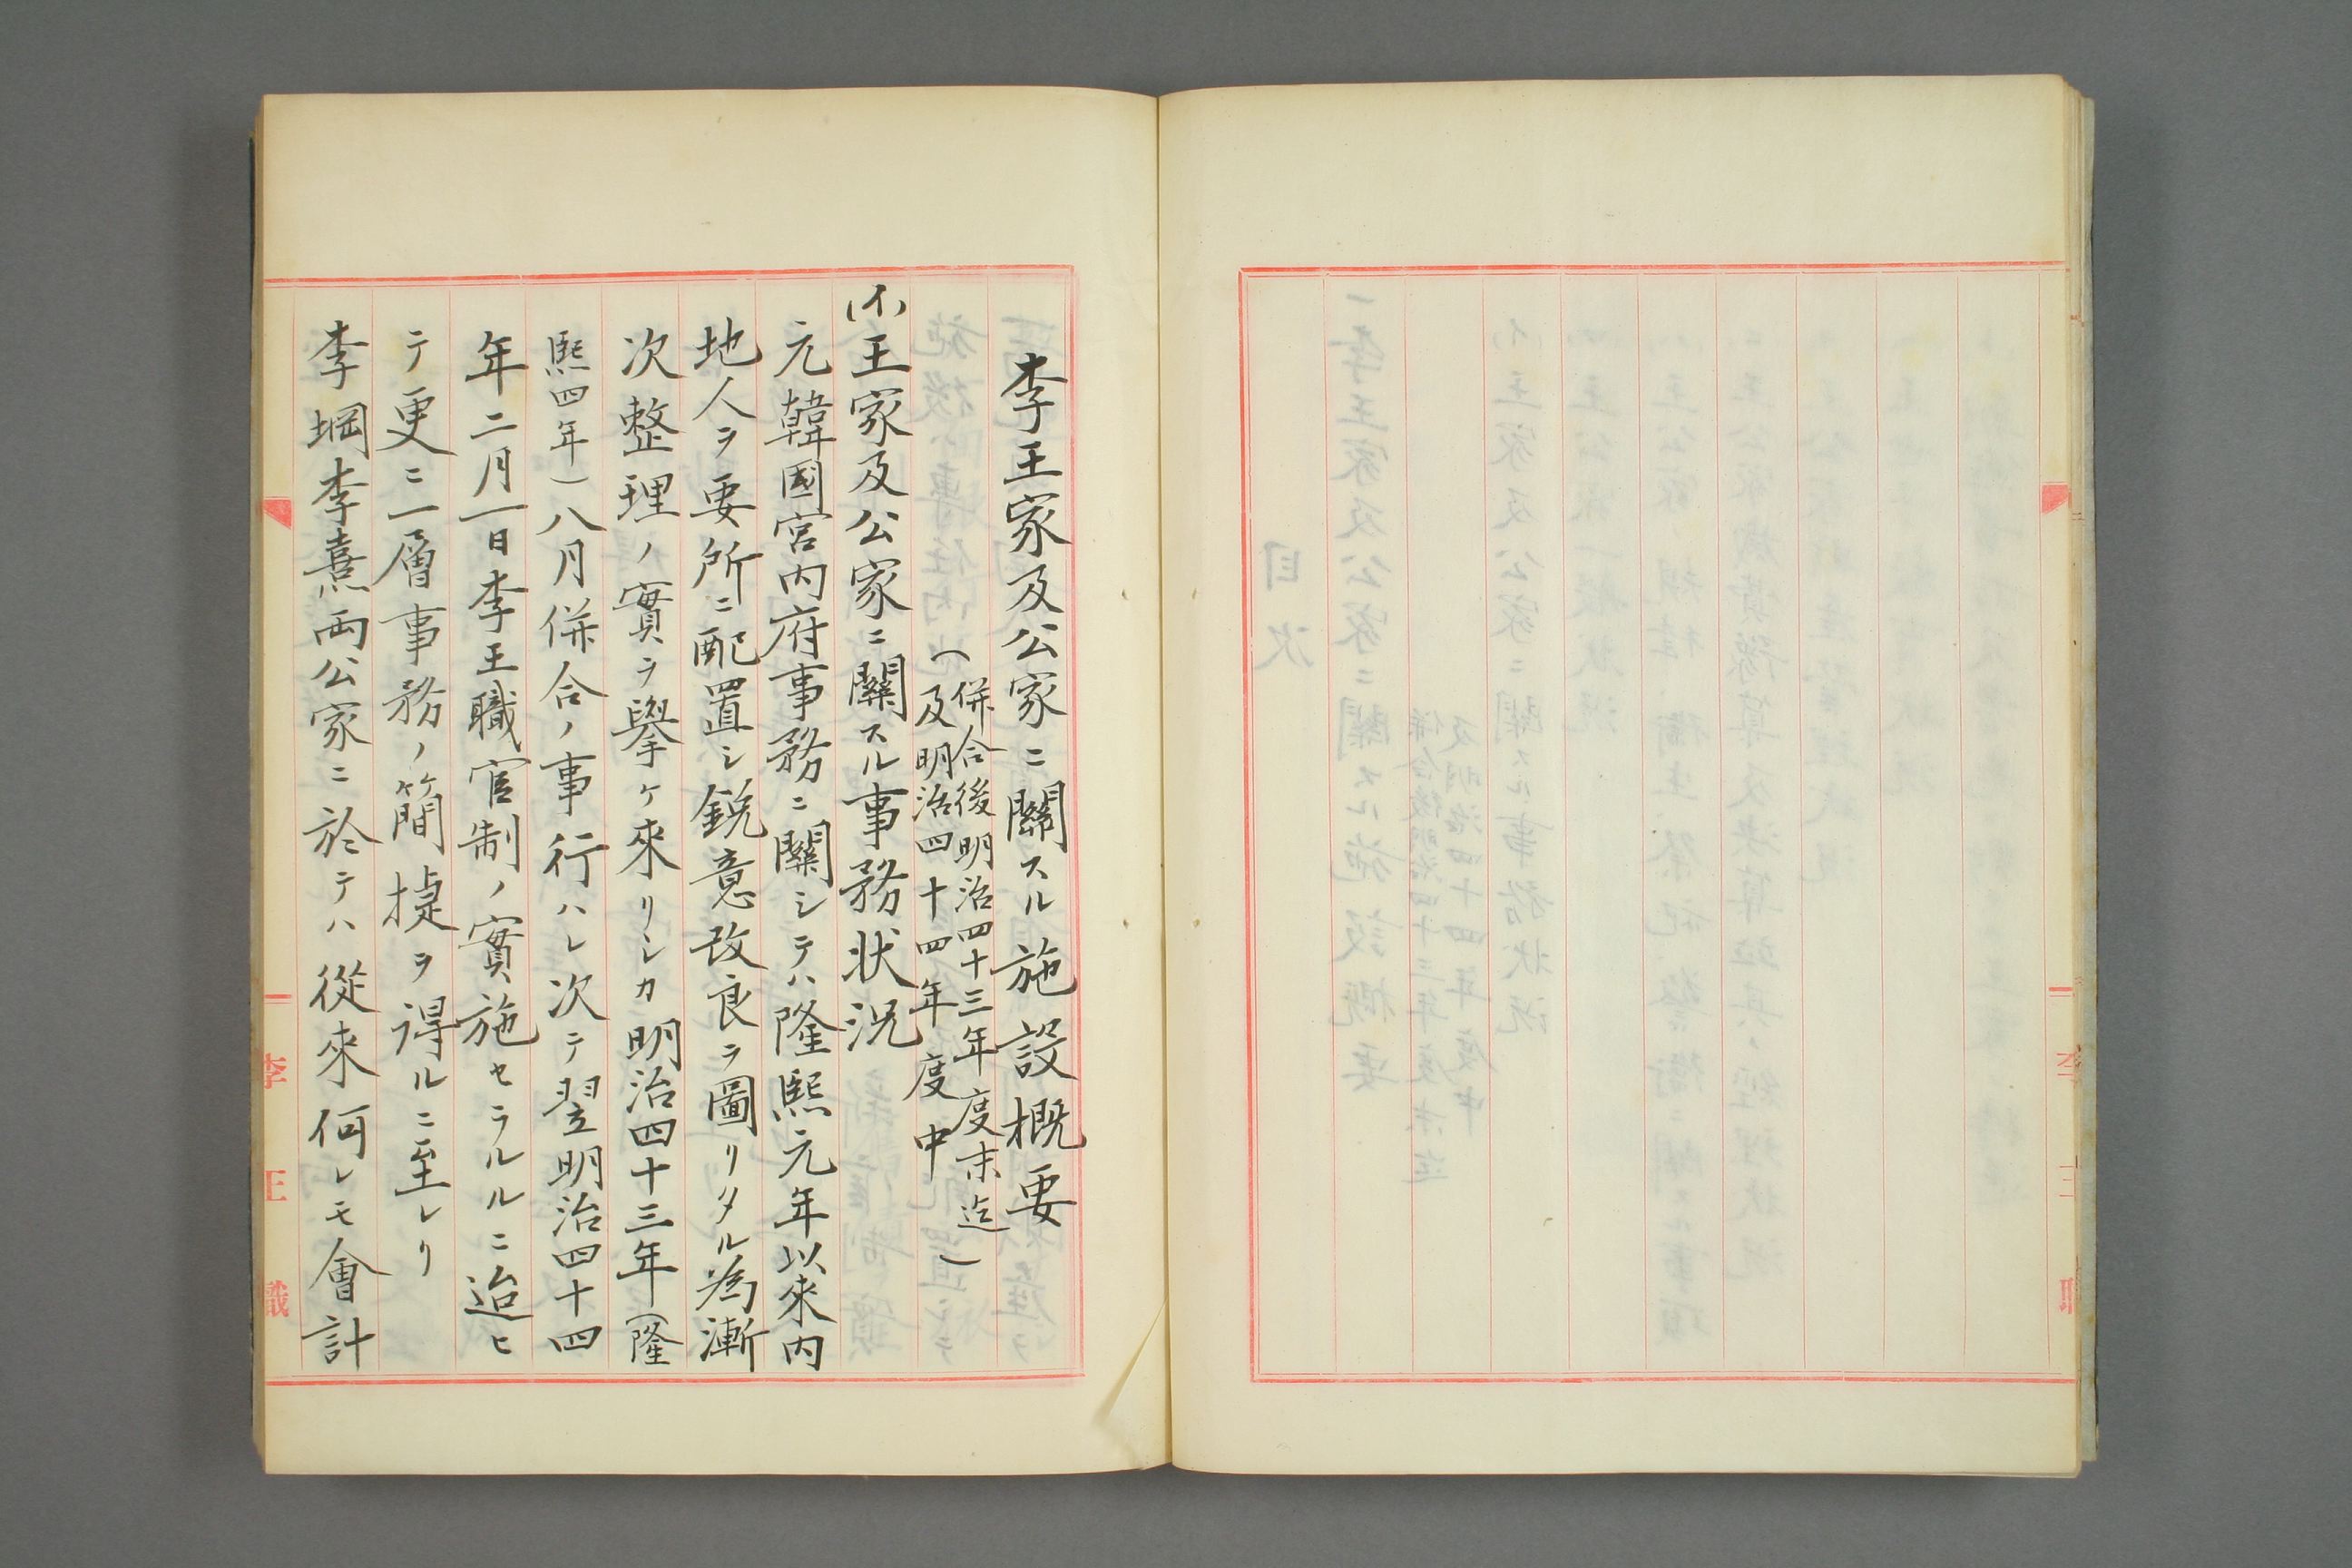 李王家及公家ニ關スル施設概要
(併合後明治四十三年度末迄
及明治四十四年度中)
(イ)王家及公家ニ關スル事務状況
元韓國宮内府事務ニ關シテハ隆熙元年以來内
地人ヲ要所ニ配置シ鋭意改良ヲ圖リタル為漸
次整理ノ實ヲ擧ケ來リシカ明治四十三年(隆
熙四年)八月併合ノ事行ハレ次テ翌明治四十四
年二月一日李王職官制ノ實施セラルルニ迨ヒ
テ更ニ一層事務ノ簡捷ヲ得ルニ至レリ
李堈李熹両公家ニ於テハ從來何レモ會計
李王職